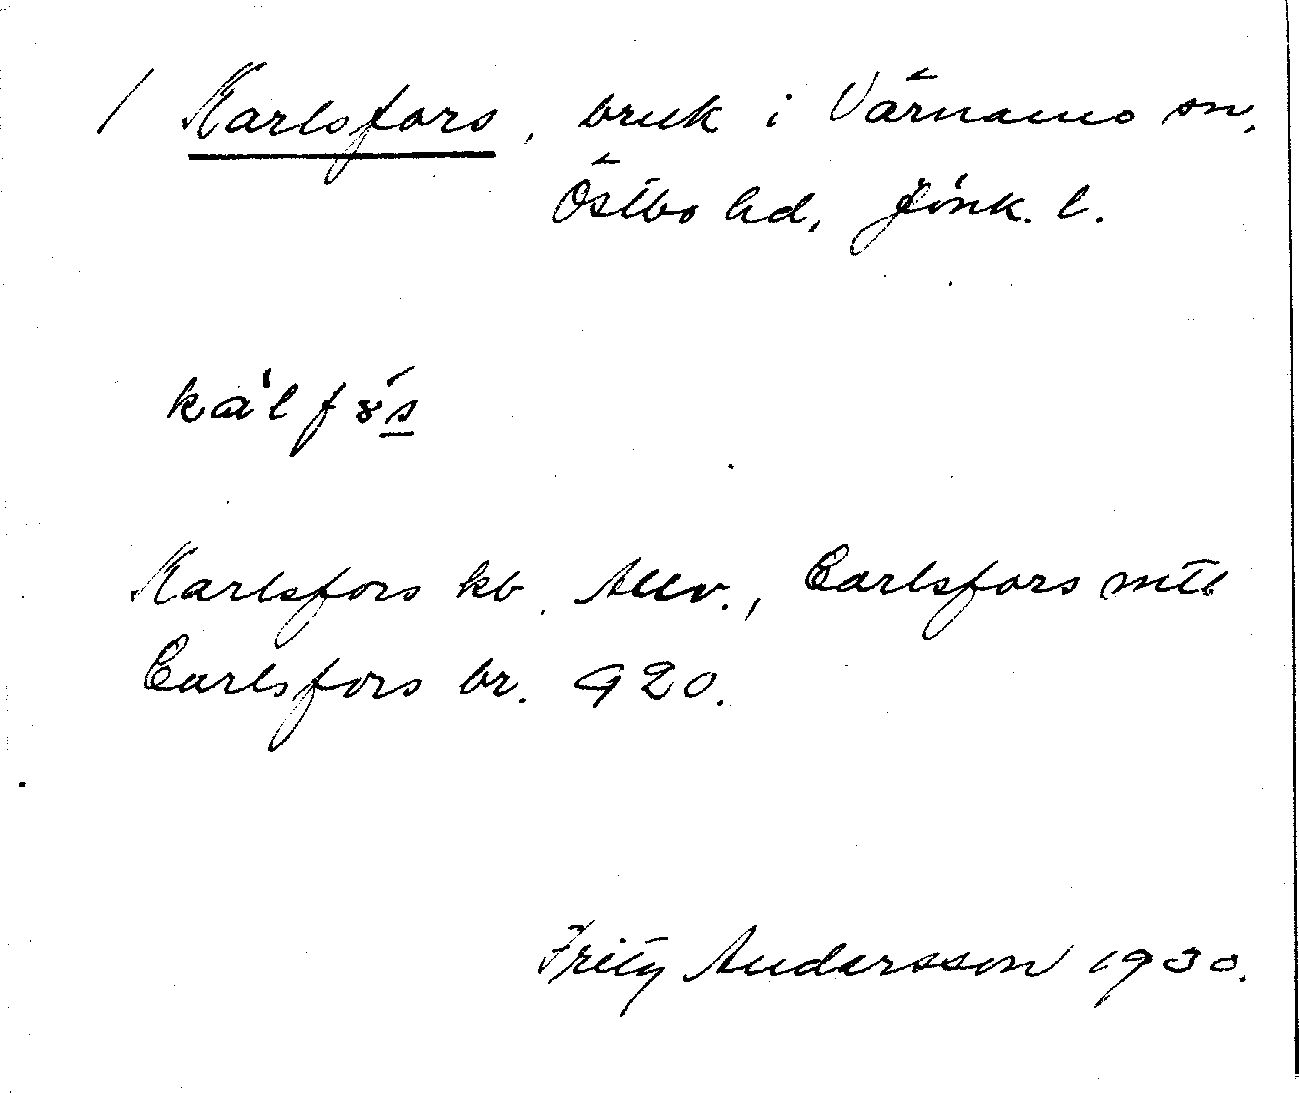 / Karlsfors, bruk i Värnamo sn,
Östbo hd, Jönk. l.
Karlsfors kb. Allv., Carlsfors mtb
Carlsfors br. 920.
Fritz Andersson 1930.